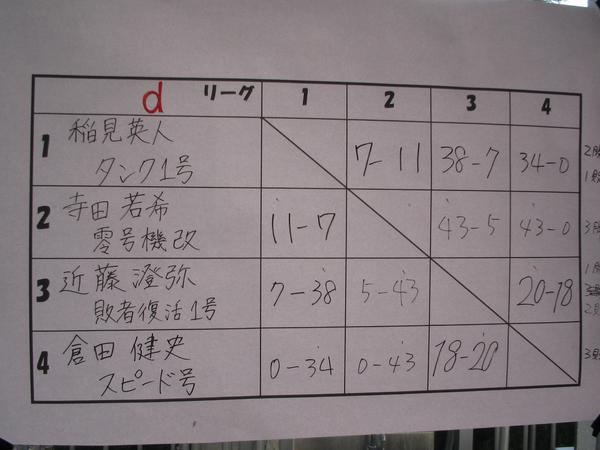 d リーグ 1 2 3 4
1 稲見英人
タンク1号
7-11 38-7 34-0
2 寺田 若希
零号機改
11-7 43-5 43-0
3 近藤 澄弥
敗者復活1号
7-38 5-43 20-18
4 倉田 健史
スピード号
0-34 0-43 18-20